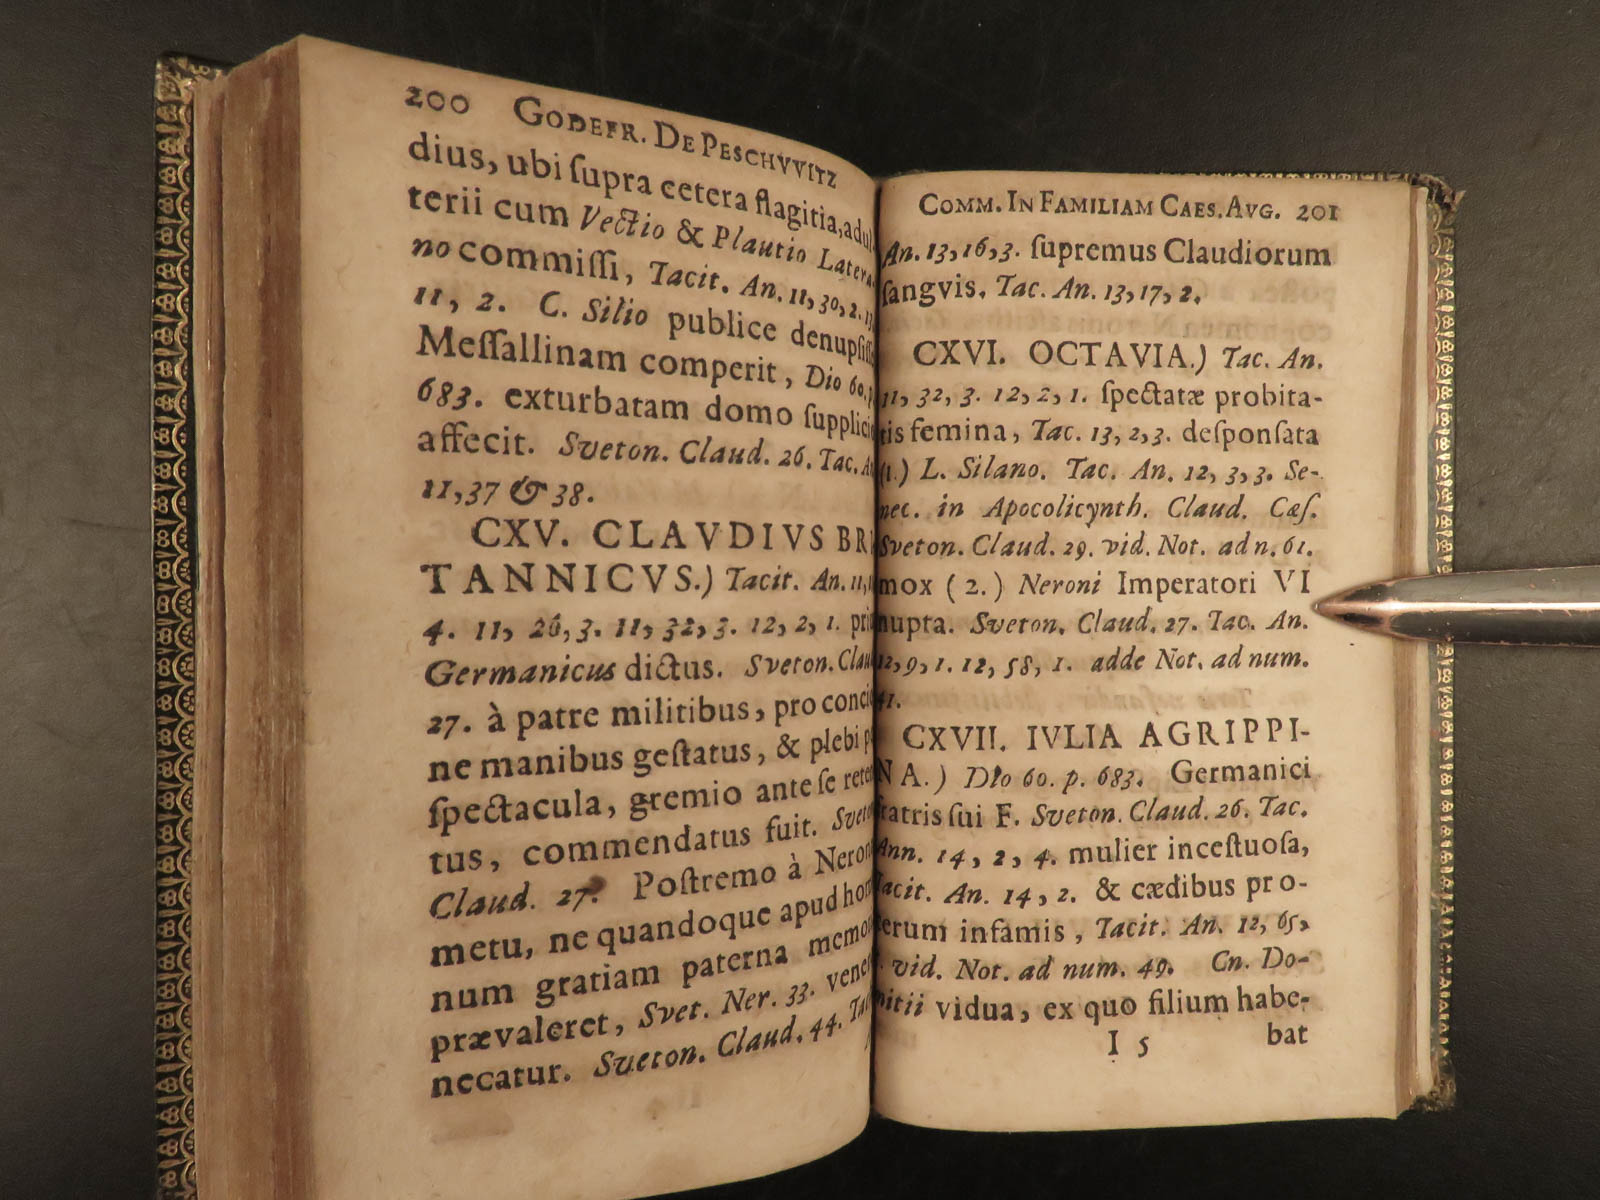 200 GODEFR. DE PESCHVVITZ
dius, ubi ſupra cetera flagitia, adul-
terii cum Vectio & Plautio Latera-
no commiſſi, Tacit. An. 11, 30, 2. 13,
11, 2. C. Silio publice denupſiſſe
Meſſallinam comperit, Dio 60. p.
683. exturbatam domo ſupplicio
affecit. Sveton. Claud. 26. Tac. An.
11, 37 & 38.
CXV. CLAVDIVS BRI-
TANNICVS.) Tacit. An. 11,
4. 11, 26, 3. 11, 32, 3. 12, 2, 1.
Germanicus dictus. Sveton. Claud.
27. à patre militibus, pro concio-
ne manibus geſtatus, & plebi
ſpectacula, gremio ante ſe reten-
tus, commendatus fuit. Sveton.
Claud. 27. Poſtremo à Nerone
metu, ne quandoque apud homi-
num gratiam paterna memoria
prævaleret, Svet. Ner. 33. veneno
necatur. Sveton. Claud. 44. Tac.
COMM. IN FAMILIAM CAES. AVG. 201
An. 13, 16, 3. ſupremus Claudiorum
ſangvis. Tac. An. 13, 17, 2.
CXVI. OCTAVIA.) Tac. An.
11, 32, 3. 12, 2, 1. ſpectatæ probita-
tis femina, Tac. 13, 2, 3. deſponſata
(1.) L. Silano. Tac. An. 12, 3, 3. Se-
nec. in Apocolicynth. Claud. Cæſ.
Sveton. Claud. 29. vid. Not. ad n. 61.
mox (2.) Neroni Imperatori VI
nupta. Sveton. Claud. 27. Tac. An.
12, 9, 1. 12, 58, 1. adde Not. ad num.
41.
CXVII. IVLIA AGRIPPI-
NA.) Dio 60. p. 683. Germanici
fratris ſui F. Sveton. Claud. 26. Tac.
Ann. 14, 2, 4. mulier inceſtuoſa,
Tacit. An. 14, 2. & cædibus pro-
cerum infamis, Tacit. An. 12, 65,
vid. Not. ad num. 49. Cn. Do-
mitii vidua, ex quo filium habe-
I 5 bat